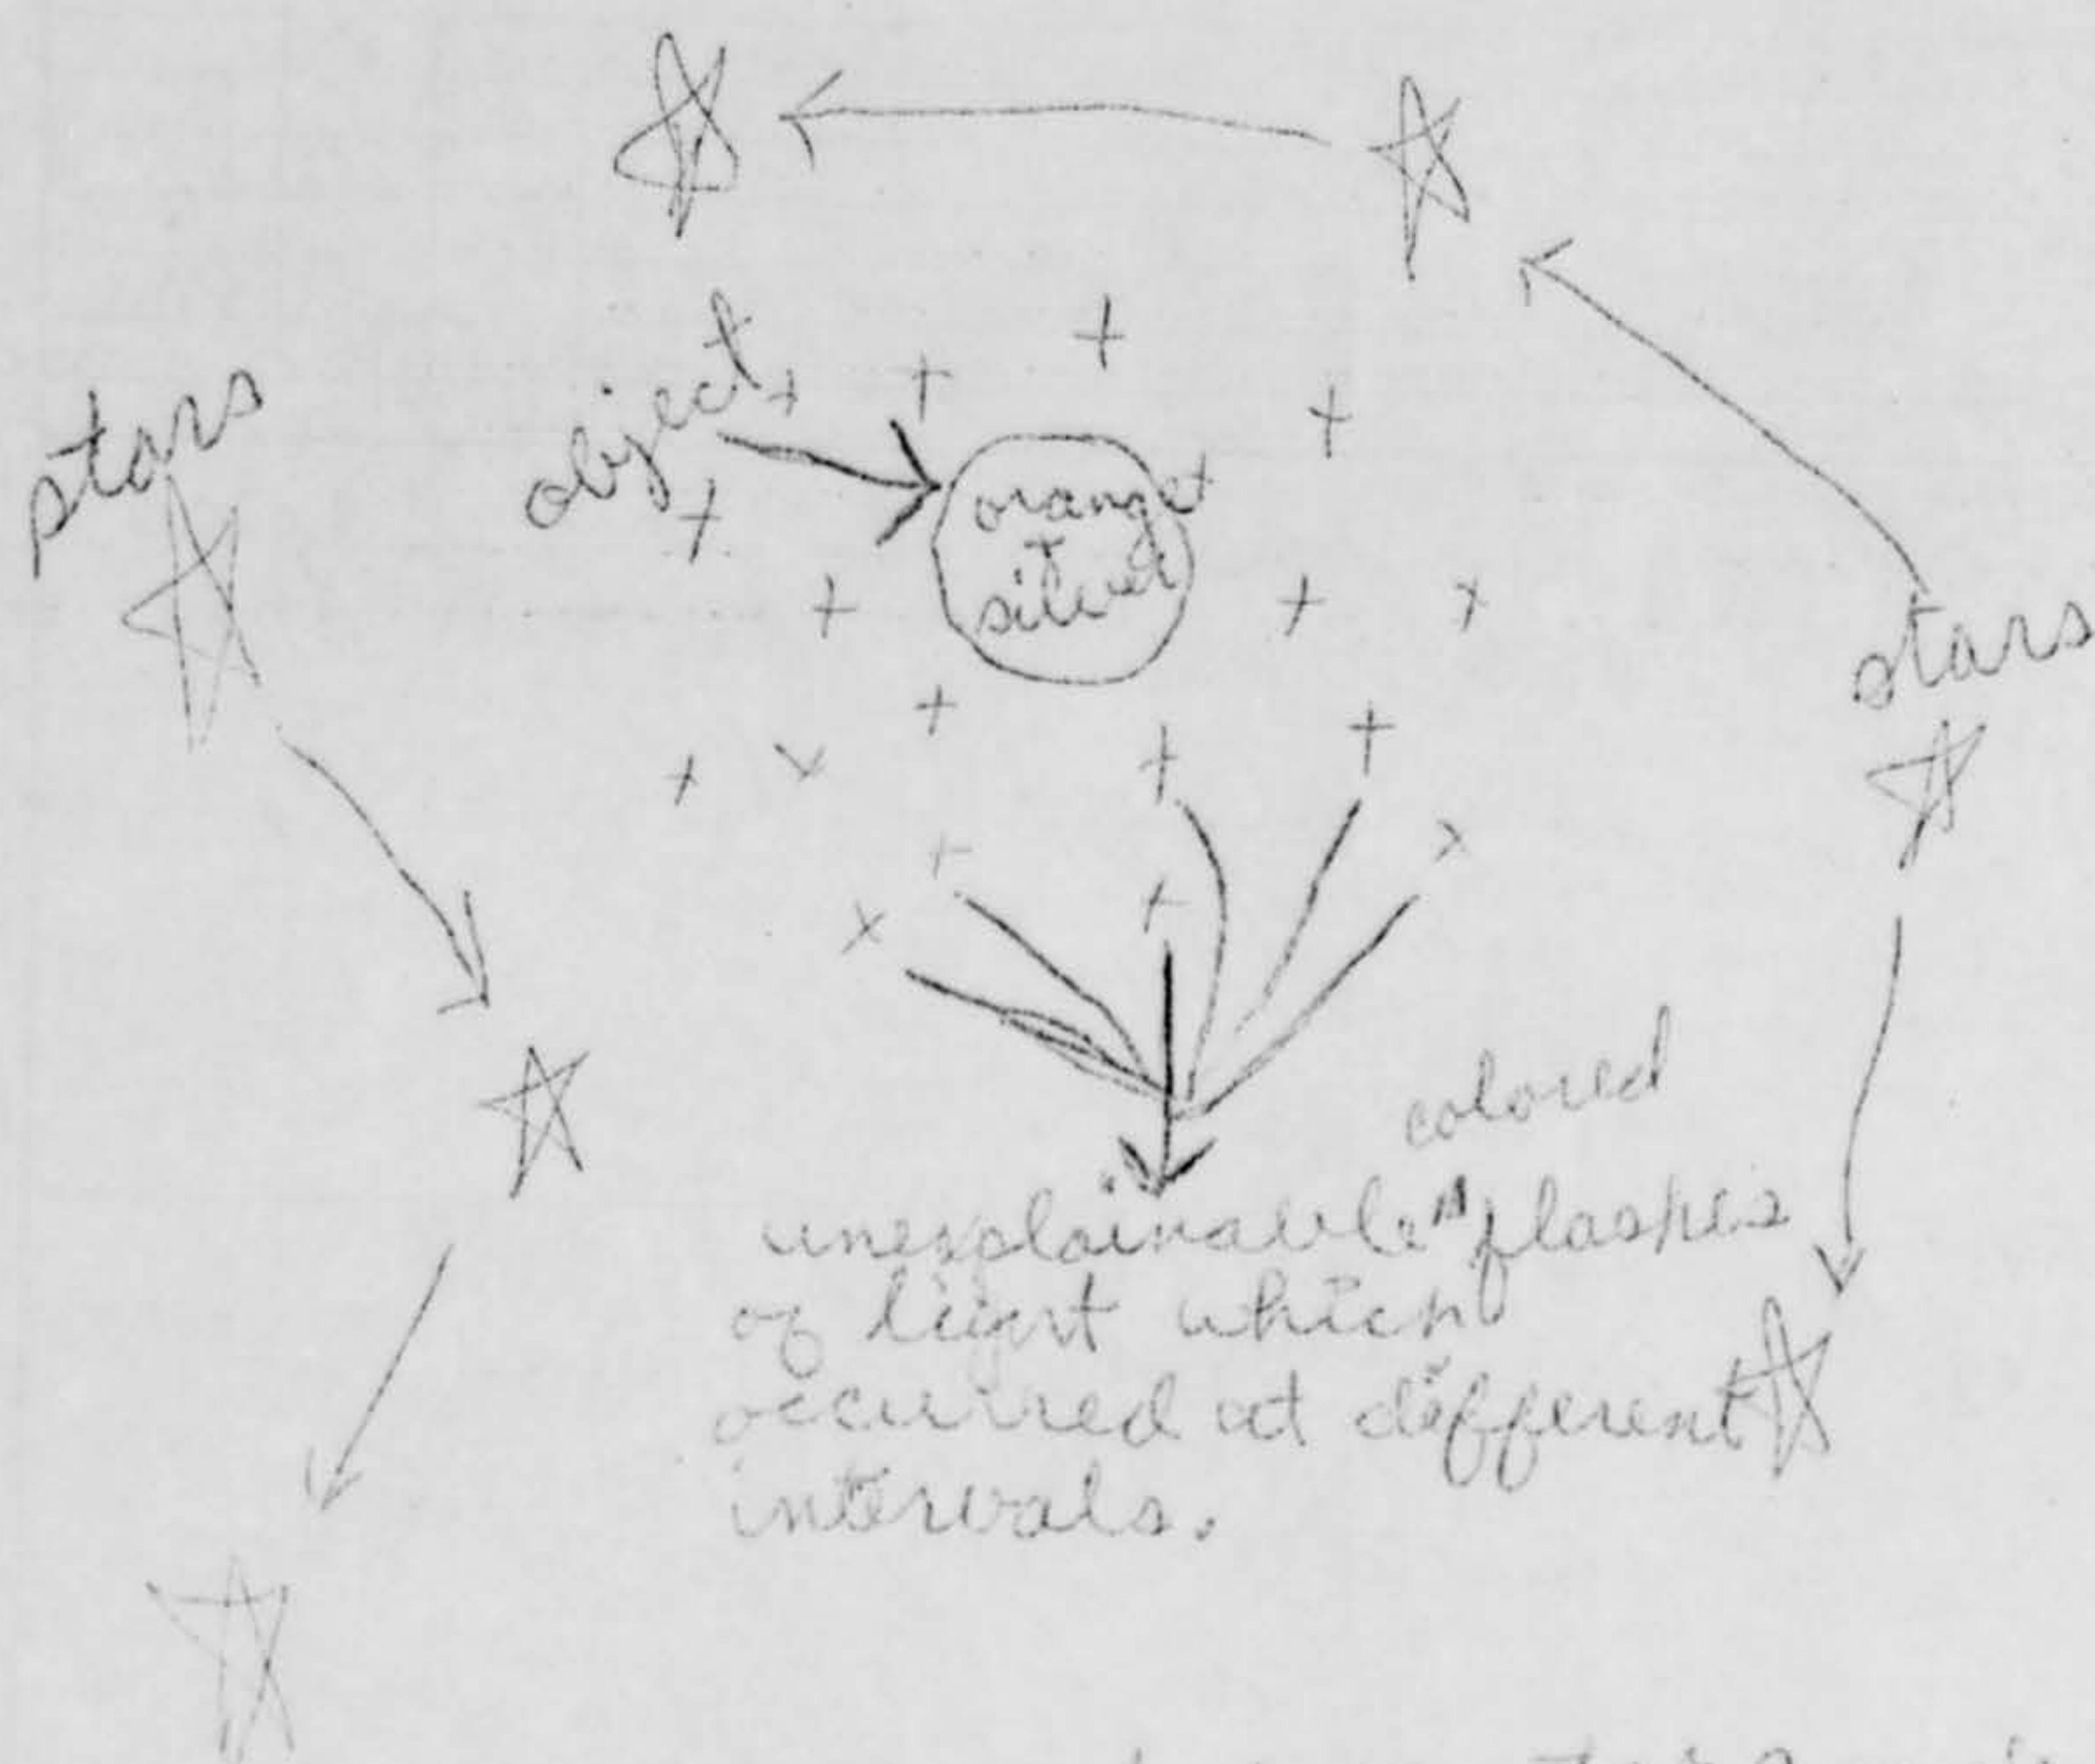 stars
object
orange
+
silver
stars
colored
unexplainable ^ flashes
of light which
occurred at different
intervals.